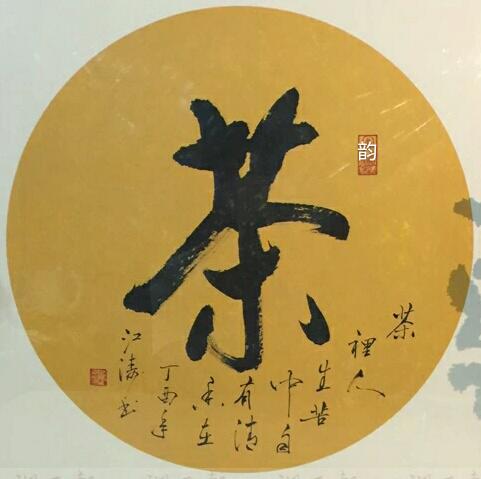 茶
韵
茶
裡人
生苦
中自
有清
香在
丁酉年
江涛书